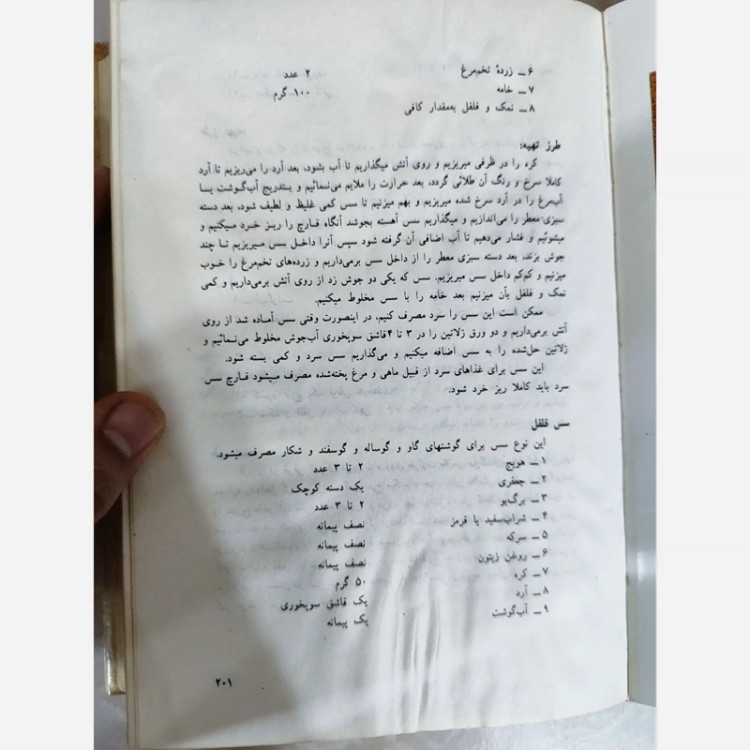 ۶ــ زردهٔ تخم‌مرغ ۲ عدد
۷ــ خامه ۱۰۰ گرم
۸ــ نمک و فلفل به‌مقدار کافی
طرز تهیه:
کره را در ظرفی میریزیم و روی آتش میگذاریم تا آب بشود، بعد آرد را می‌ریزیم تا آرد
کاملا سرخ و رنگ آن طلائی گردد، بعد حرارت را ملایم می‌نمائیم و بتدریج آب‌گوشت یسا
آب‌مرغ را در آرد سرخ شده میریزیم و بهم میزنیم تا سس کمی غلیظ و لطیف شود، بعد دسته
سبزی معطر را می‌اندازیم و میگذاریم سس آهسته بجوشد آنگاه قسارچ را ریسز خسرد میکنیم و
میشوئیم و فشار می‌دهیم تا آب اضافی آن گرفته شود سپس آنرا داخل سس میریزیم تسا چند
جوش بزند، بعد دسته سبزی معطر را از داخل سس برمی‌داریم و زرده‌های تخم‌مرغ را خسوب
میزنیم و کم‌کم داخل سس میریزیم. سس که یکی دو جوش زد از روی آتش برمی‌داریم و کمی
نمک و فلفل بآن میزنیم بعد خامه را با سس مخلوط میکنیم.
ممکن است این سس را سرد مصرف کنیم، در اینصورت وقتی سس آماده شد از روی
آتش برمی‌داریم و دو ورق ژلاتین را در ۳ تا ۴قاشق سوپخوری آب‌جوش مخلوط می‌نمسائیم و
ژلاتین حل‌شده را به سس اضافه میکنیم و می‌گذاریم سس سرد و کمی بسته شود.
این سس برای غذاهای سرد از قبیل ماهی و مرغ پخته‌شده مصرف میشود قسارچ سس
سرد باید کاملا ریز خرد شود.
سس فلفل
این نوع سس برای گوشتهای گاو و گوساله و گوسفند و شکار مصرف میشود.
۱ــ هویج ۲ تا ۳ عدد
۲ــ جعفری یک دسته کوچک
۳ــ برگ‌بو ۲ تا ۳ عدد
۴ــ شراب‌سفید یا قرمز نصف پیمانه
۵ــ سرکه نصف پیمانه
۶ــ روغن زیتون نصف پیمانه
۷ــ کره ۵۰ گرم
۸ــ آرد یک قاشق سوپخوری
۹ــ آب‌گوشت یک پیمانه
۲۰۱